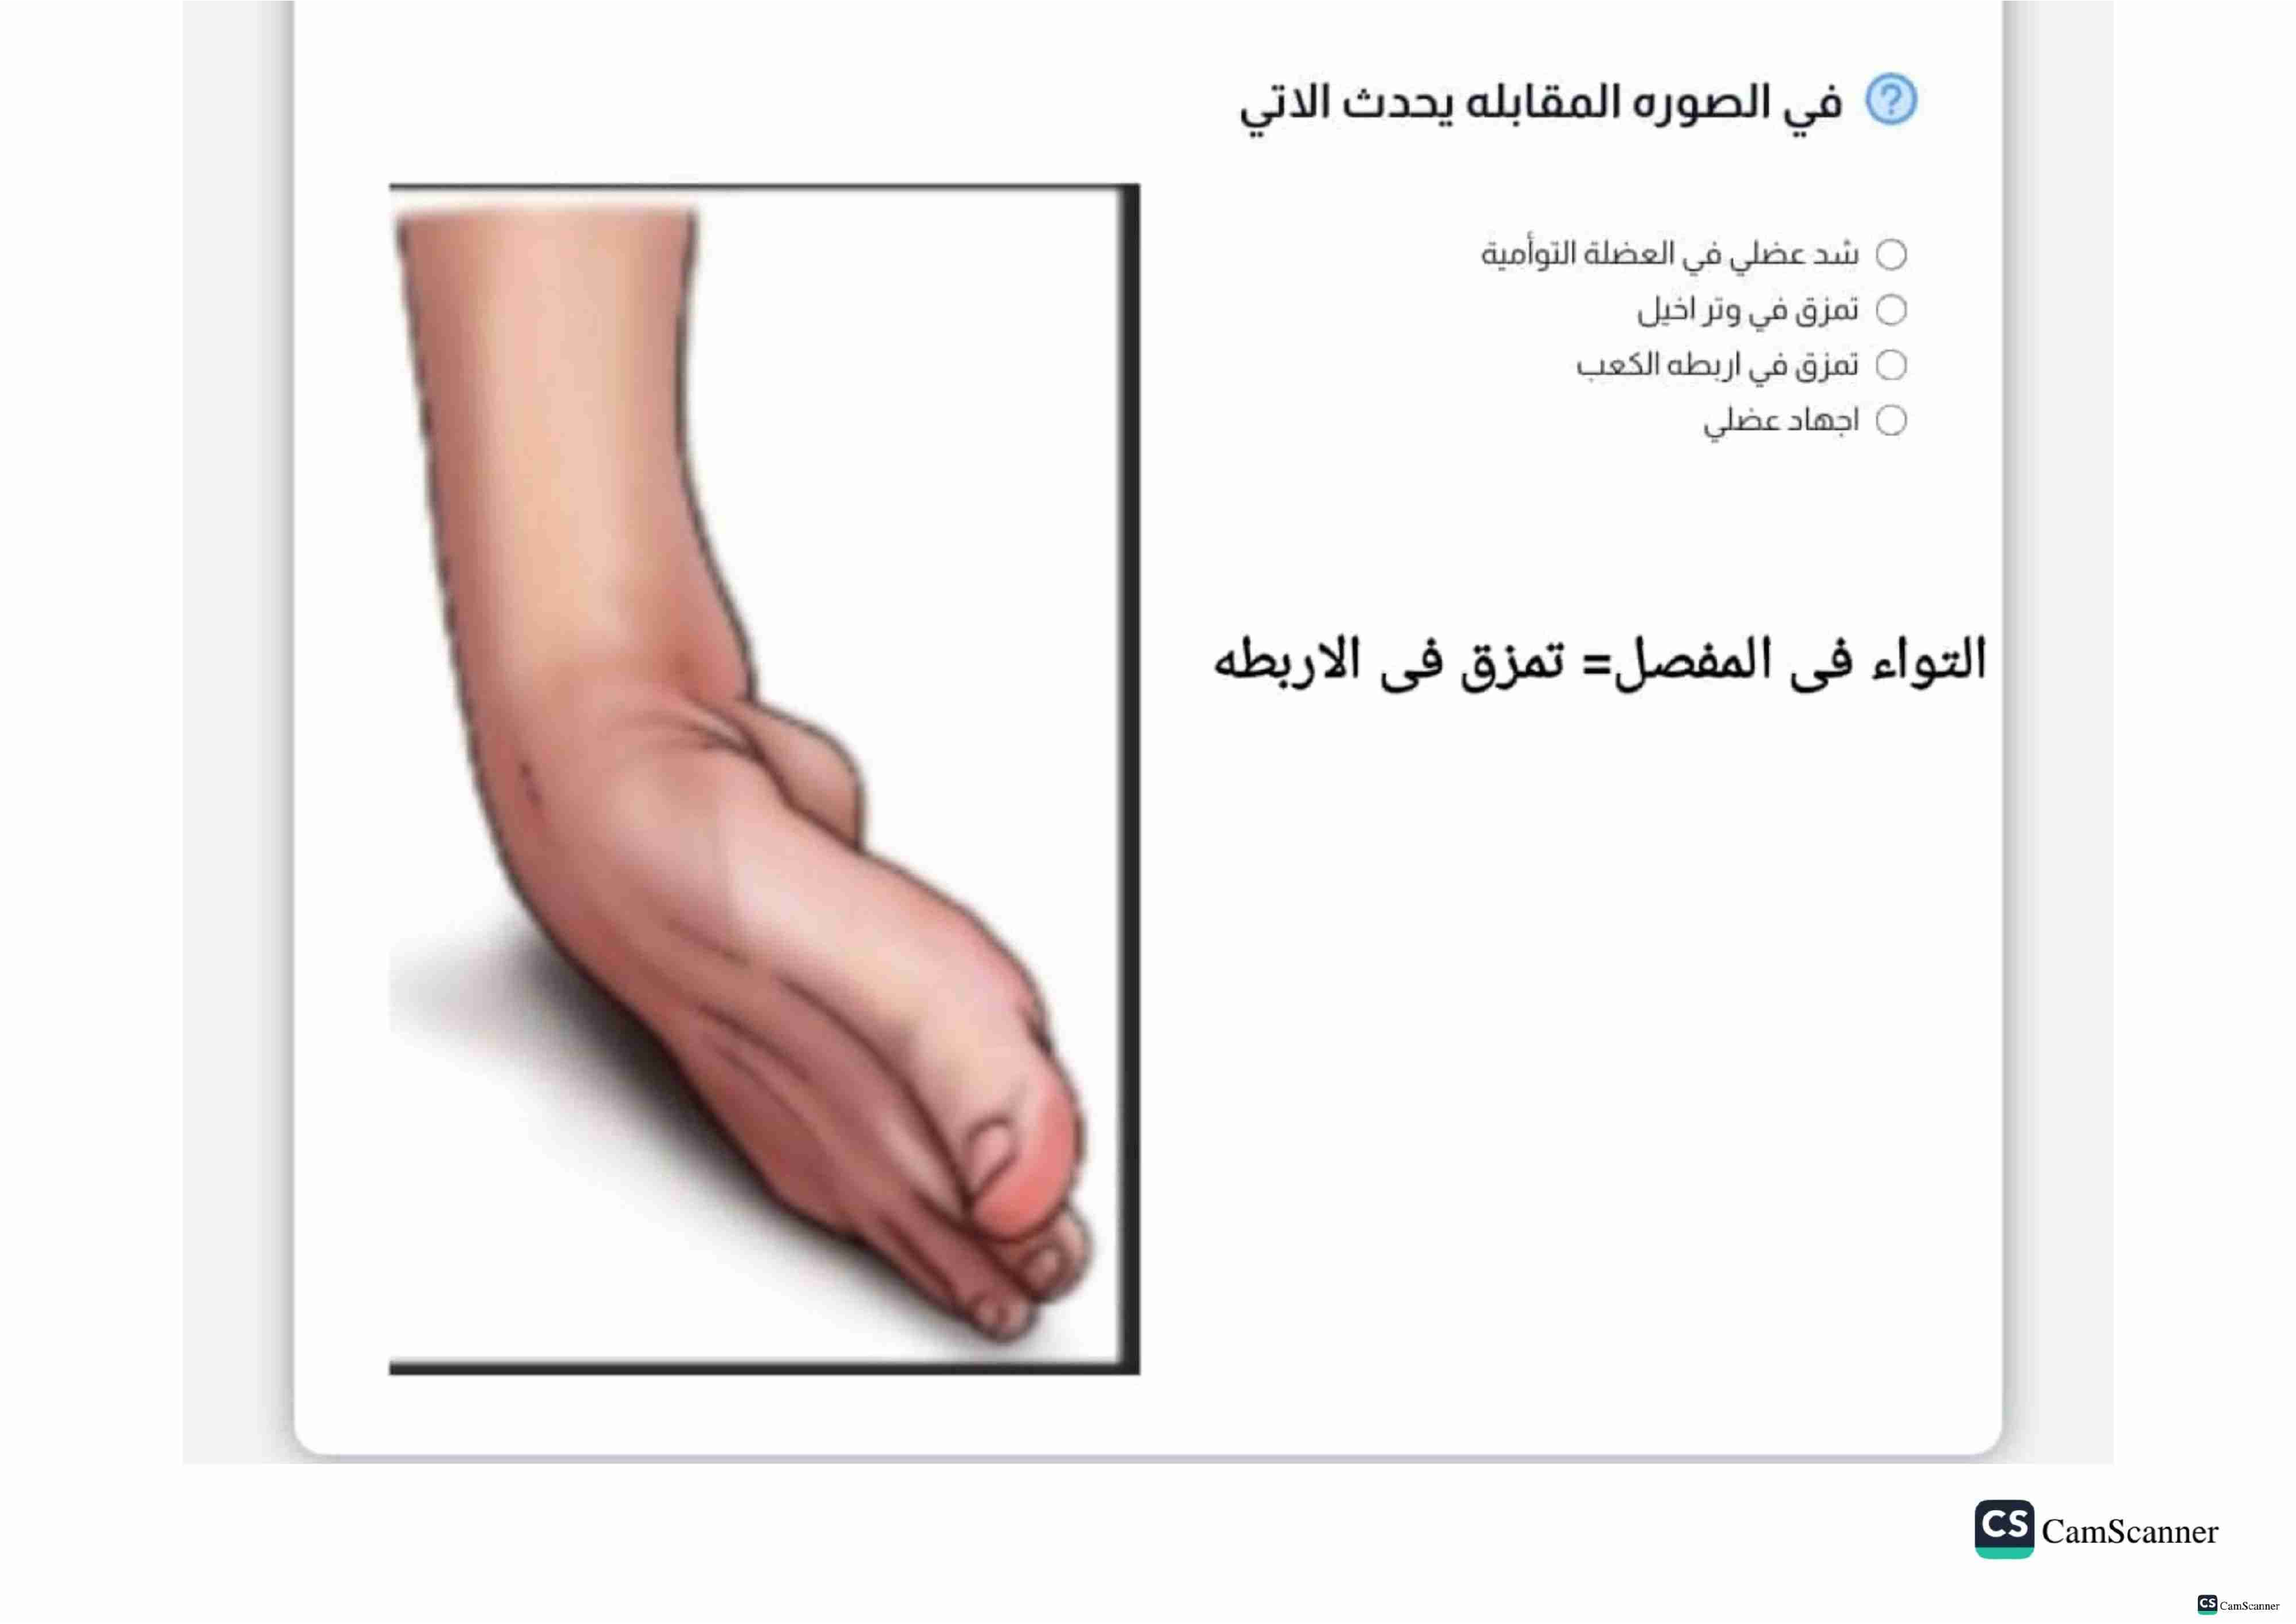 في الصوره المقابله يحدث الاتي
شد عضلي في العضلة التوأمية
تمزق في وتر اخيل
تمزق في اربطه الكعب
اجهاد عضلي
التواء فى المفصل= تمزق فى الاربطه
CS CamScanner
CS CamScanner